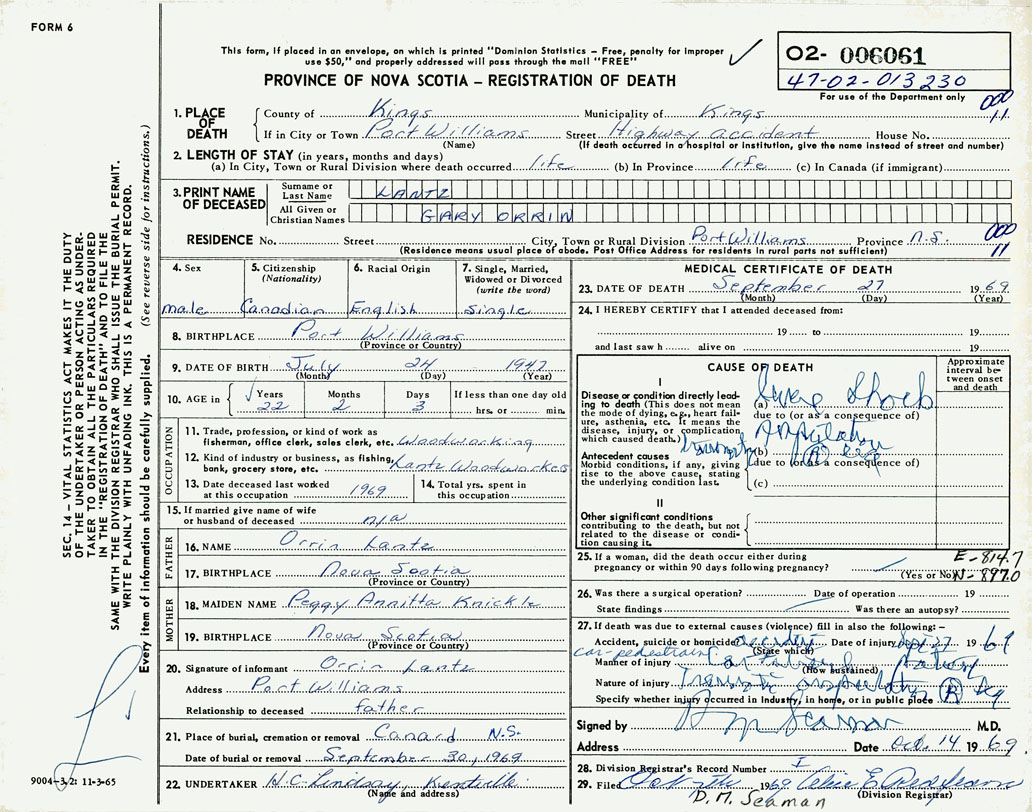 FORM 6
This form, if placed in an envelope, on which is printed "Dominion Statistics – Free, penalty for improper
use $50," and properly addressed will pass through the mail "FREE"
PROVINCE OF NOVA SCOTIA – REGISTRATION OF DEATH
O2- 006061
47-02-013230
For use of the Department only
000
11
1. PLACE OF DEATH
County of Kings Municipality of Kings
If in City or Town Port Williams Street Highway accident House No.
(Name) (If death occurred in a hospital or institution, give the name instead of street and number)
2. LENGTH OF STAY (in years, months and days)
(a) In City, Town or Rural Division where death occurred life (b) In Province life (c) In Canada (if immigrant)
3. PRINT NAME OF DECEASED
Surname or Last Name LANTZ
All Given or Christian Names GARY ORRIN
RESIDENCE No. Street City, Town or Rural Division Port Williams Province N.S.
(Residence means usual place of abode. Post Office Address for residents in rural parts not sufficient)
000
11
4. Sex male
5. Citizenship (Nationality) Canadian
6. Racial Origin English
7. Single, Married, Widowed or Divorced (write the word) Single
8. BIRTHPLACE Port Williams
(Province or Country)
9. DATE OF BIRTH July 24 1947
(Month) (Day) (Year)
10. AGE in Years 22 Months 2 Days 3 If less than one day old hrs. or min.
OCCUPATION
11. Trade, profession, or kind of work as fisherman, office clerk, sales clerk, etc. Woodworking
12. Kind of industry or business, as fishing, bank, grocery store, etc. Lantz Woodworkers
13. Date deceased last worked at this occupation 1969
14. Total yrs. spent in this occupation
15. If married give name of wife or husband of deceased n/a
FATHER
16. NAME Orrin Lantz
17. BIRTHPLACE Nova Scotia
(Province or Country)
MOTHER
18. MAIDEN NAME Peggy Annitta Knickle
19. BIRTHPLACE Nova Scotia
(Province or Country)
20. Signature of informant Orrin Lantz
Address Port Williams
Relationship to deceased father
21. Place of burial, cremation or removal Canard N.S.
Date of burial or removal September 30, 1969
22. UNDERTAKER W.C. Lindsay Kentville
(Name and address)
MEDICAL CERTIFICATE OF DEATH
23. DATE OF DEATH September 27 1969
(Month) (Day) (Year)
24. I HEREBY CERTIFY that I attended deceased from:
19 to 19
and last saw h alive on 19
CAUSE OF DEATH
Approximate interval between onset and death
I
Disease or condition directly leading to death (This does not mean the mode of dying, e.g., heart failure, asthenia, etc. It means the disease, injury, or complication which caused death.)
(a) Shock
due to (or as a consequence of)
Antecedent causes
Morbid conditions, if any, giving rise to the above cause, stating the underlying condition last.
(b) Amputation R leg
due to (or as a consequence of)
(c)
II
Other significant conditions contributing to the death, but not related to the disease or condition causing it.
25. If a woman, did the death occur either during pregnancy or within 90 days following pregnancy?
(Yes or No)
E-814.7
N-897.0
26. Was there a surgical operation? Date of operation 19
State findings Was there an autopsy?
27. If death was due to external causes (violence) fill in also the following:–
Accident, suicide or homicide accident Date of injury Sept 27 1969
(State which)
car-pedestrian
Manner of injury Car
(How sustained)
Nature of injury Traumatic amputation R leg
Specify whether injury occurred in industry, in home, or in public place
Signed by D M Seaman M.D.
Address Date Oct. 14 1969
28. Division Registrar's Record Number I
29. Filed 1969
(Division Registrar)
D. M. Seaman
SEC. 14 – VITAL STATISTICS ACT MAKES IT THE DUTY
OF THE UNDERTAKER OR PERSON ACTING AS UNDER-
TAKER TO OBTAIN ALL THE PARTICULARS REQUIRED
IN THE "REGISTRATION OF DEATH" AND TO FILE THE
SAME WITH THE DIVISION REGISTRAR WHO SHALL ISSUE THE BURIAL PERMIT.
WRITE PLAINLY WITH UNFADING INK. THIS IS A PERMANENT RECORD.
Every item of information should be carefully supplied. (See reverse side for instructions.)
9004-3.2: 11-3-65